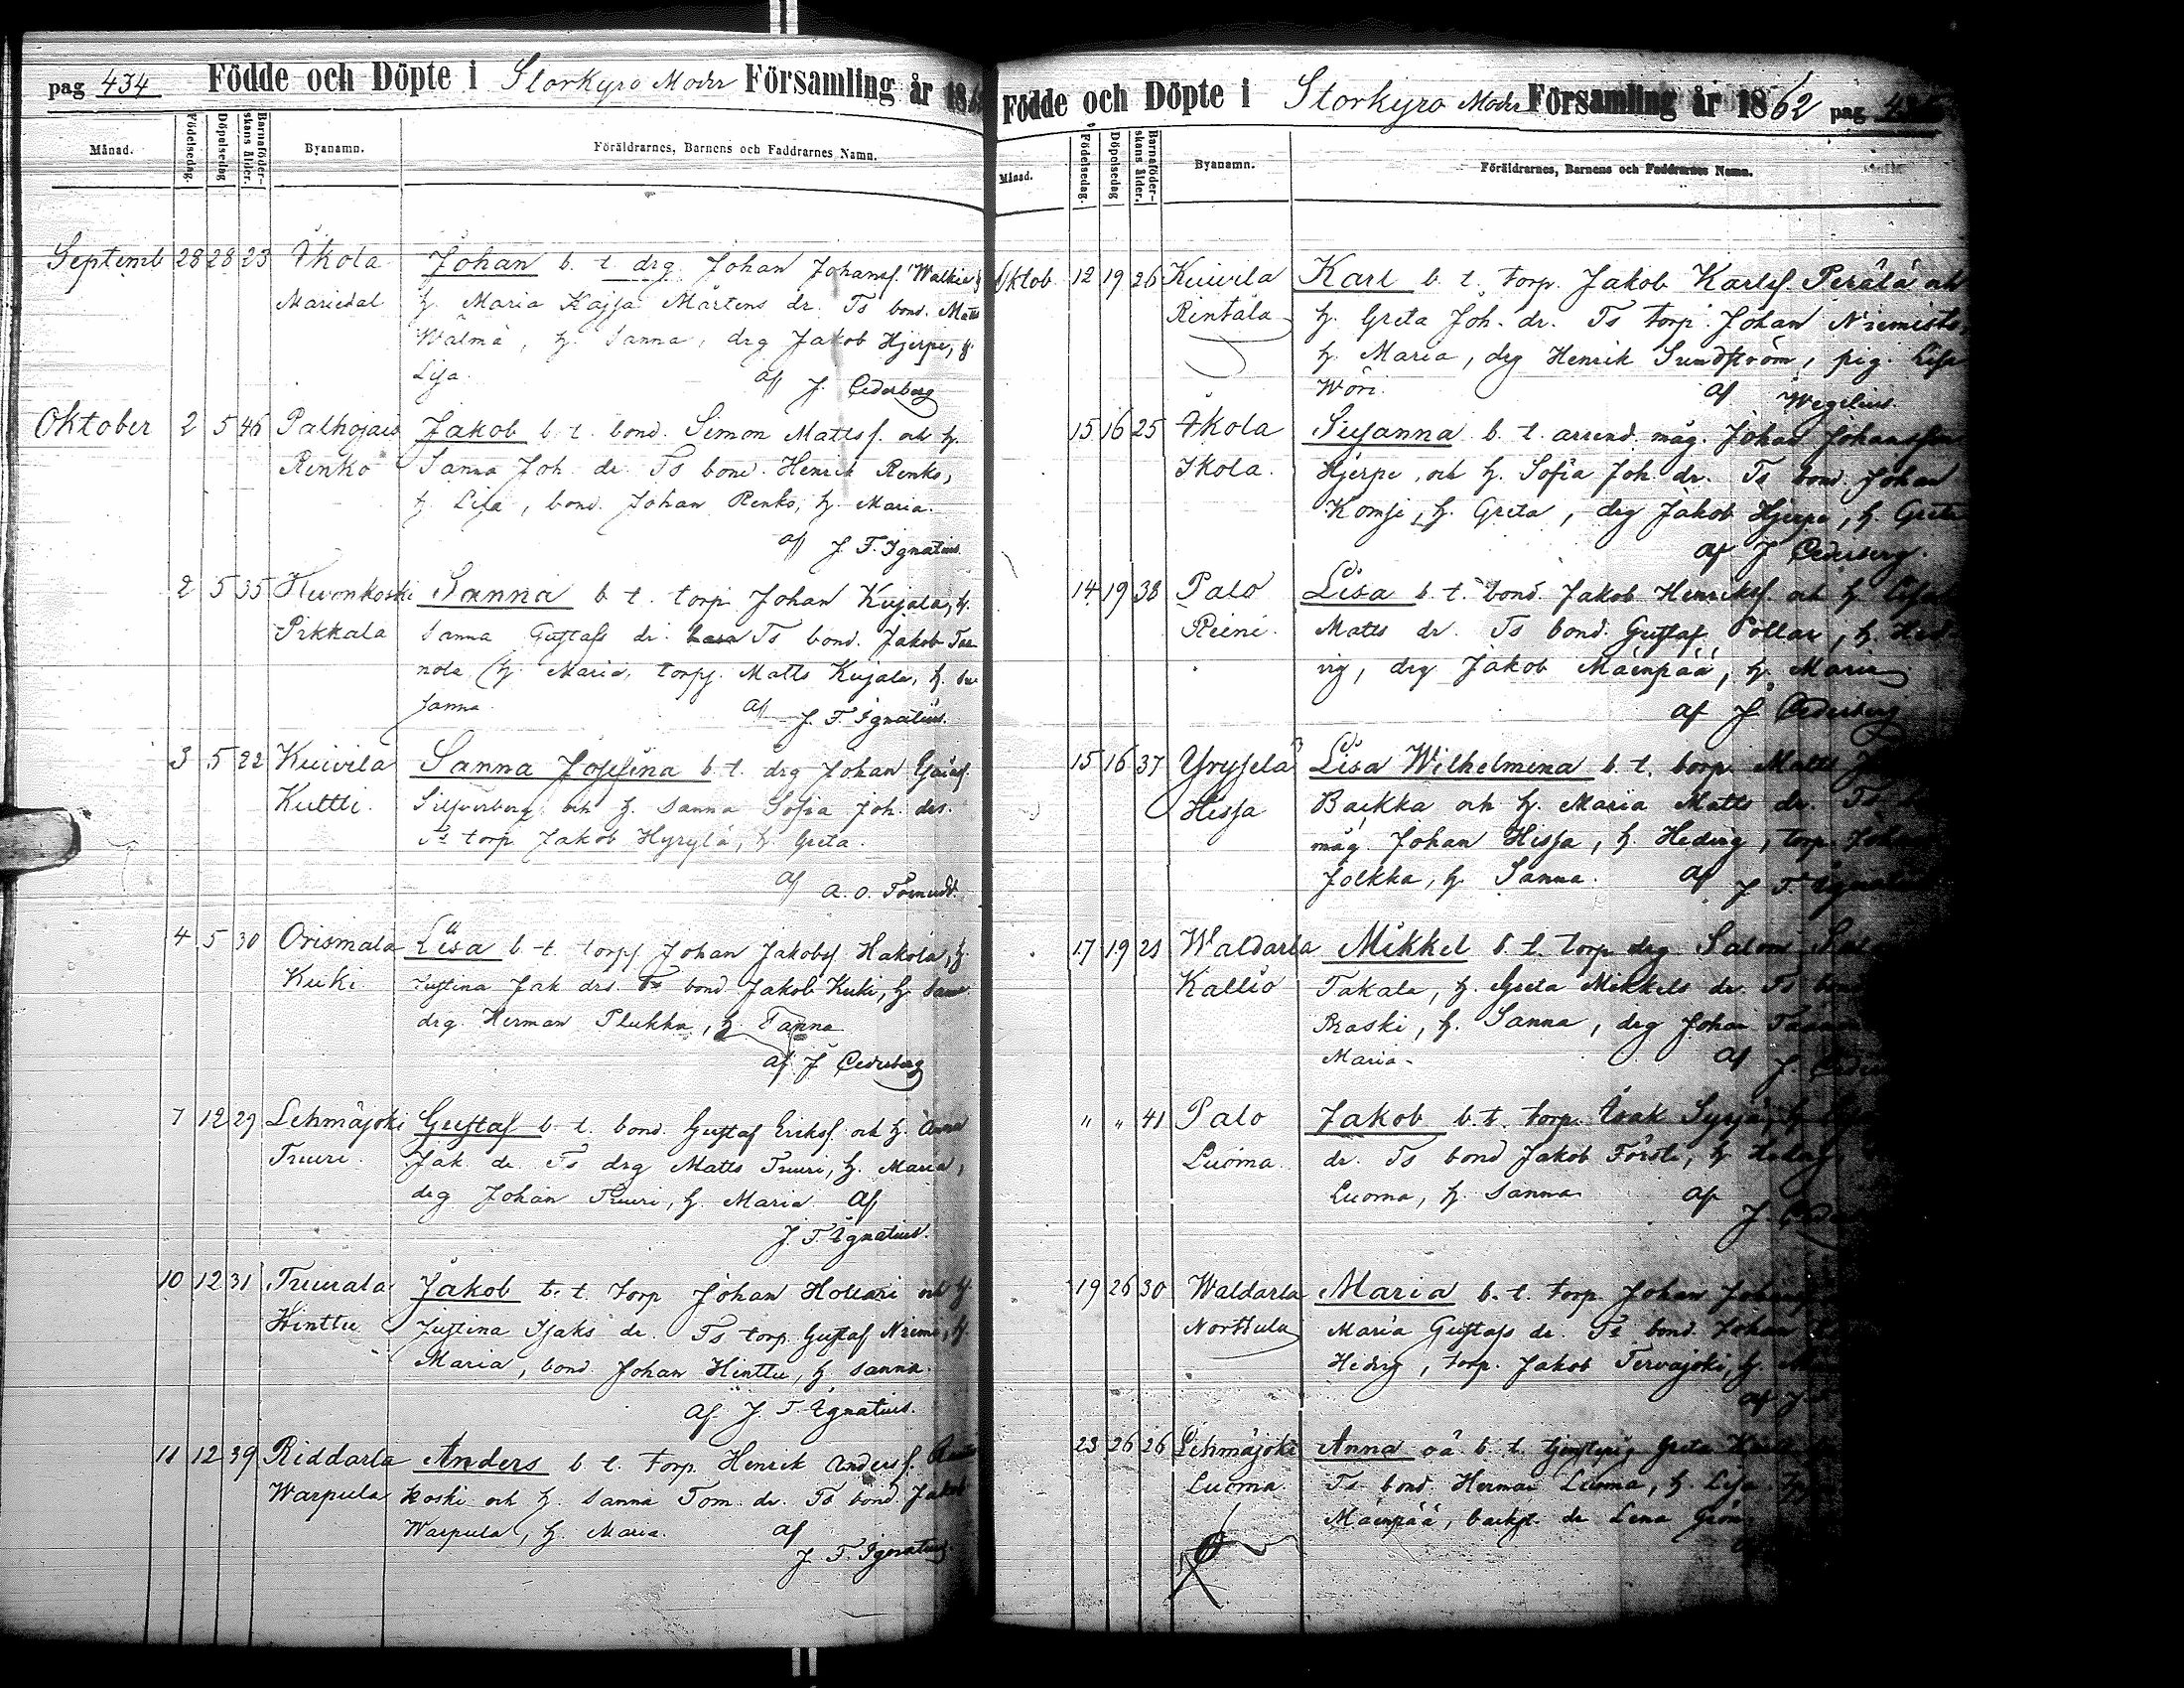 pag 434 Födde och Döpte i Storkyro Moder Församling år 186
Månad. Födelsedag. Döpelsedag Barnaföderskans ålder. Byanamn. Föräldrarnes, Barnens och Faddrarnes Namn.
Septemb 28 28 23 Ikola Johan b. t. drg Johan Johansf. Walkia
Mariedal h. Maria Kajsa Mårtens dr. Ts bond. Matts
Wälmä, h. Sanna, drg Jakob Hjerpe, h
Lisa. af J. Cederberg
Oktober 2 5 46 Palhojais Jakob b. t. bond. Simon Mattsf. och h.
Renko Sanna Joh. dr. Ts bond. Henrik Renko,
h. Lisa, bond. Johan Renko, h. Maria.
af J. F. Ignatius.
2 5 35 Hevonkoski Sanna b. t. torp. Johan Kujala, h.
Pikkala Sanna Gustafs dr. Ts bond. Jakob Taa-
nola h. Maria, torp. Matts Kujala, h. Su-
sanna. af J. F. Ignatius.
3 5 22 Kuivila Sanna Josefina b. t. drg Johan
Kuttti. Silfverberg och h. Sanna Sofia Joh. drs.
Ts torp. Jakob Hyrylä, h. Greta.
af A. O. Törnudd.
4 5 30 Orismala Lisa b. t. torp. Johan Jakobsf. Hakola, h.
Kuki Justina Jak. drs. Ts bond. Jakob Kuki, h. Sanna
drg. Herman Plukka, h. Sanna
af J. Cederberg
7 12 29 Lehmäjoki Gustaf b. t. bond. Gustaf Eriksf. och h. Anna
Truuri. Jak. dr. Ts drg Matts Truuri, h. Maria,
drg Johan Truuri, h. Maria af
J. F. Ignatius.
10 12 31 Tuurala Jakob b. t. torp Johan Hollari och h.
Hinttu Justina Isaks dr. Ts torp. Gustaf Niemi, h.
Maria, bond. Johan Hinttu, h. Sanna.
af J. F. Ignatius.
11 12 39 Riddarla Anders b. t. torp. Henrik Andersf.
Warpula koski och h. Sanna Tom. dr. Ts bond. Jakob
Warpula, h. Maria. af
J. F. Ignatius.
Födde och Döpte i Storkyro Moder Församling år 1862 pag
Månad. Födelsedag. Döpelsedag Barnaföderskans ålder. Byanamn. Föräldrarnes, Barnens och Faddrarnes Namn.
Oktob 12 19 26 Kuivila Karl b. t. torp. Jakob Karlsf. Perälä och
Rintala h. Greta Joh. dr. Ts torp. Johan Niemistö,
h. Maria, drg Henrik Sundström, pig. Lisa
Wöri. af Wegelius.
15 16 25 Ikola Susanna b. t. arrend. måg. Johan Johansson
Ikola. Hjerpe, och h. Sofia Joh. dr. Ts bond. Johan
Komsi, h. Greta, drg Jakob Hjerpe, h. Greta
af J. Cederberg.
14 19 38 Palo Lisa b. t. bond. Jakob Henriksf. och h. Lisa
Reini. Matts dr. Ts bond. Gustaf Pollari, h. Hed-
vig, drg Jakob Mäenpää, h. Maria
af J. Cederberg
15 16 37 Yryselä Lisa Wilhelmina b. t. torp. Matts
Hissa Backka och h. Maria Matts dr. Ts
måg. Johan Hissa, h. Hedvig, torp. Johan
Jolkka, h. Sanna. af J. F. Ignatius
17 19 21 Waldarla Mikkel b. t. torp. drg. Salom.
Kallio Takala, h. Greta Mikkels dr. Ts bond
Praski, h. Sanna, drg Johan
Maria. af J. Ceder
" " 41 Palo Jakob b. t. torp. Isak Syrjä, h.
Luoma. dr. Ts bond Jakob Försti, h. Hedvig,
Luoma, h. Sanna af
J. Ceder
19 26 30 Waldarla Maria b. t. torp. Johan
Norttula Maria Gustafs dr. Ts bond. Johan
Hedvig, torp. Jakob Tervajoki, h.
af J.
23 26 26 Lehmäjoki Anna oä. b. t. tjenstepig Greta
Luoma Ts bond. Herman Luoma, h. Lisa,
Mäenpää, backst. dr Lena